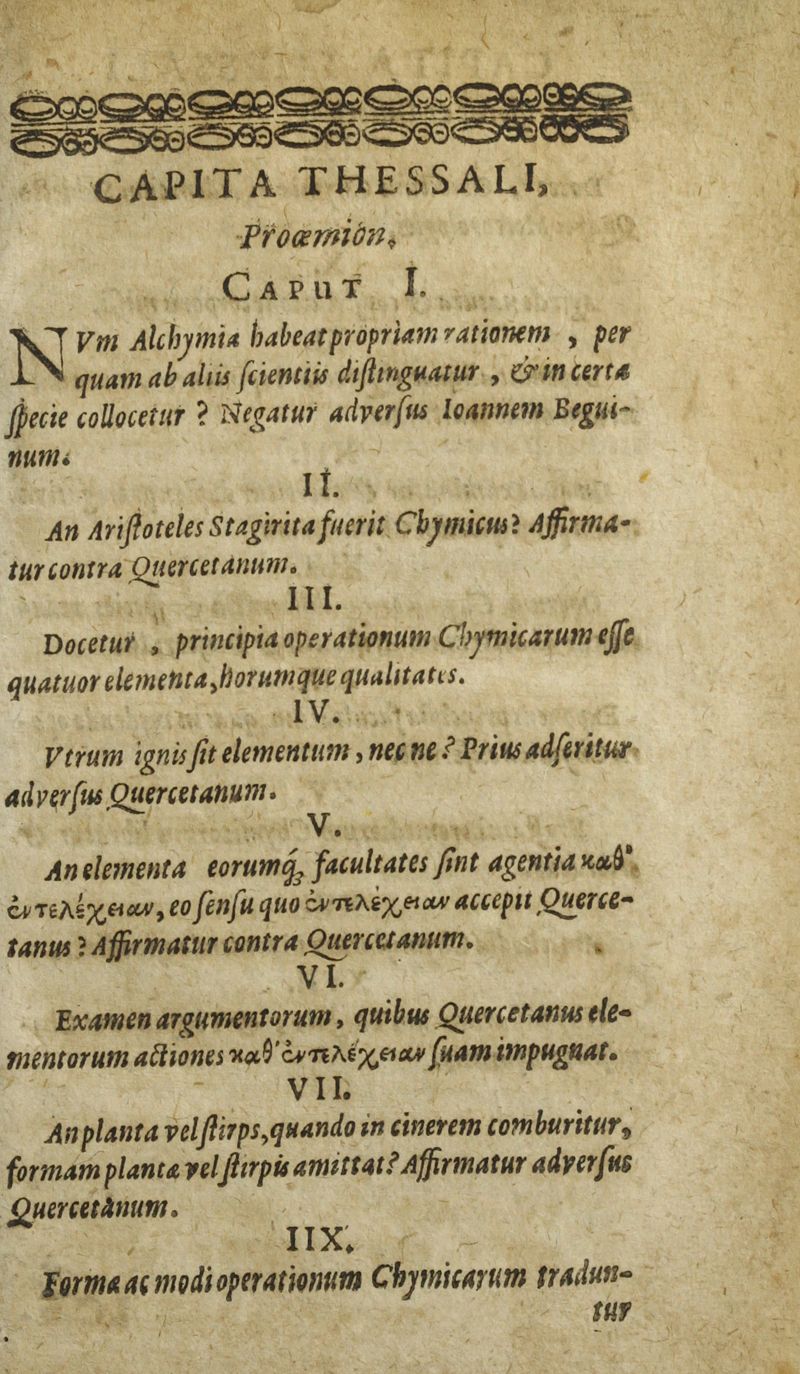 CAPITA THESSALI,
Prooemiòn.
CAPUT I.
NVm Alchymia habeat propriam rationem , per
quam ab aliis ſcientiis diſtinguatur , & in certa
ſpecie collocetur ? Negatur adverſus Ioannem Begui-
num.
II.
An Ariſtoteles Stagirita fuerit Chymicus? Affirma-
tur contra Quercetanum.
III.
Docetur , principia operationum Chymicarum eſſe
quatuor elementa, horumque qualitates.
IV.
Vtrum ignis ſit elementum, nec ne? Prius adſeritur
adverſus Quercetanum.
V.
An elementa eorumq́; facultates ſint agentia καθ'
ἐντελέχειαν, eo ſenſu quo ἐντελέχειαν accepit Querce-
tanus? Affirmatur contra Quercetanum.
VI.
Examen argumentorum, quibus Quercetanus ele-
mentorum actiones καθ' ἐντελέχειαν ſuam impugnat.
VII.
An planta vel ſtirps, quando in cinerem comburitur,
formam plantæ vel ſtirpis amittat? Affirmatur adverſus
Quercetànum.
IIX.
Formæ ac modi operationum Chymicarum tradun-
tur